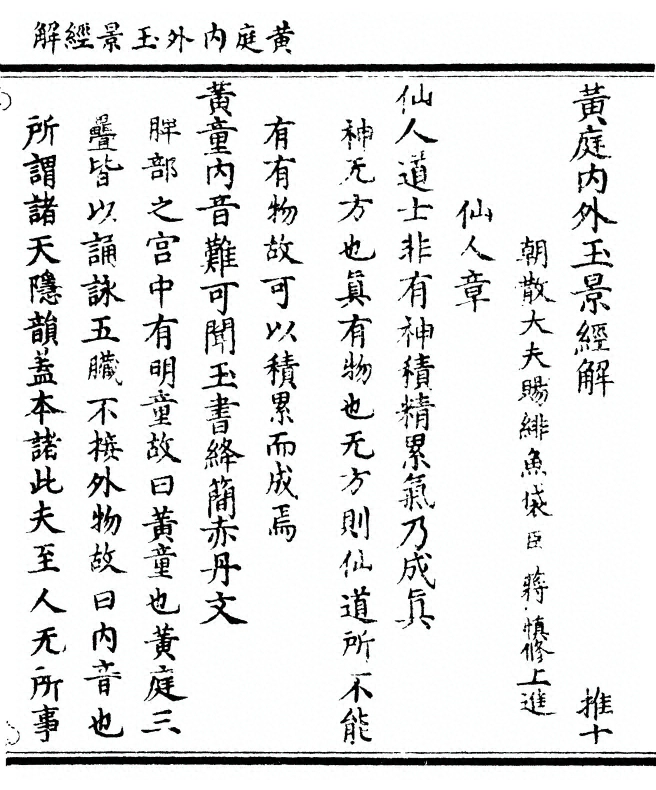 黃庭內外玉景經解
黃庭内外玉景經解 推十
朝散大夫賜緋魚袋臣蔣慎修上進
仙人章
仙人道士非有神積精累氣乃成真
神无方也真有物也无方則仙道所不能
有有物故可以積累而成焉
黃童内音難可聞玉書絳簡赤丹文
脾部之宮中有明童故曰黃童也黃庭三
疊皆以誦詠五臟不接外物故曰内音也
所謂諸天隱韻蓋本諸此夫至人无所事